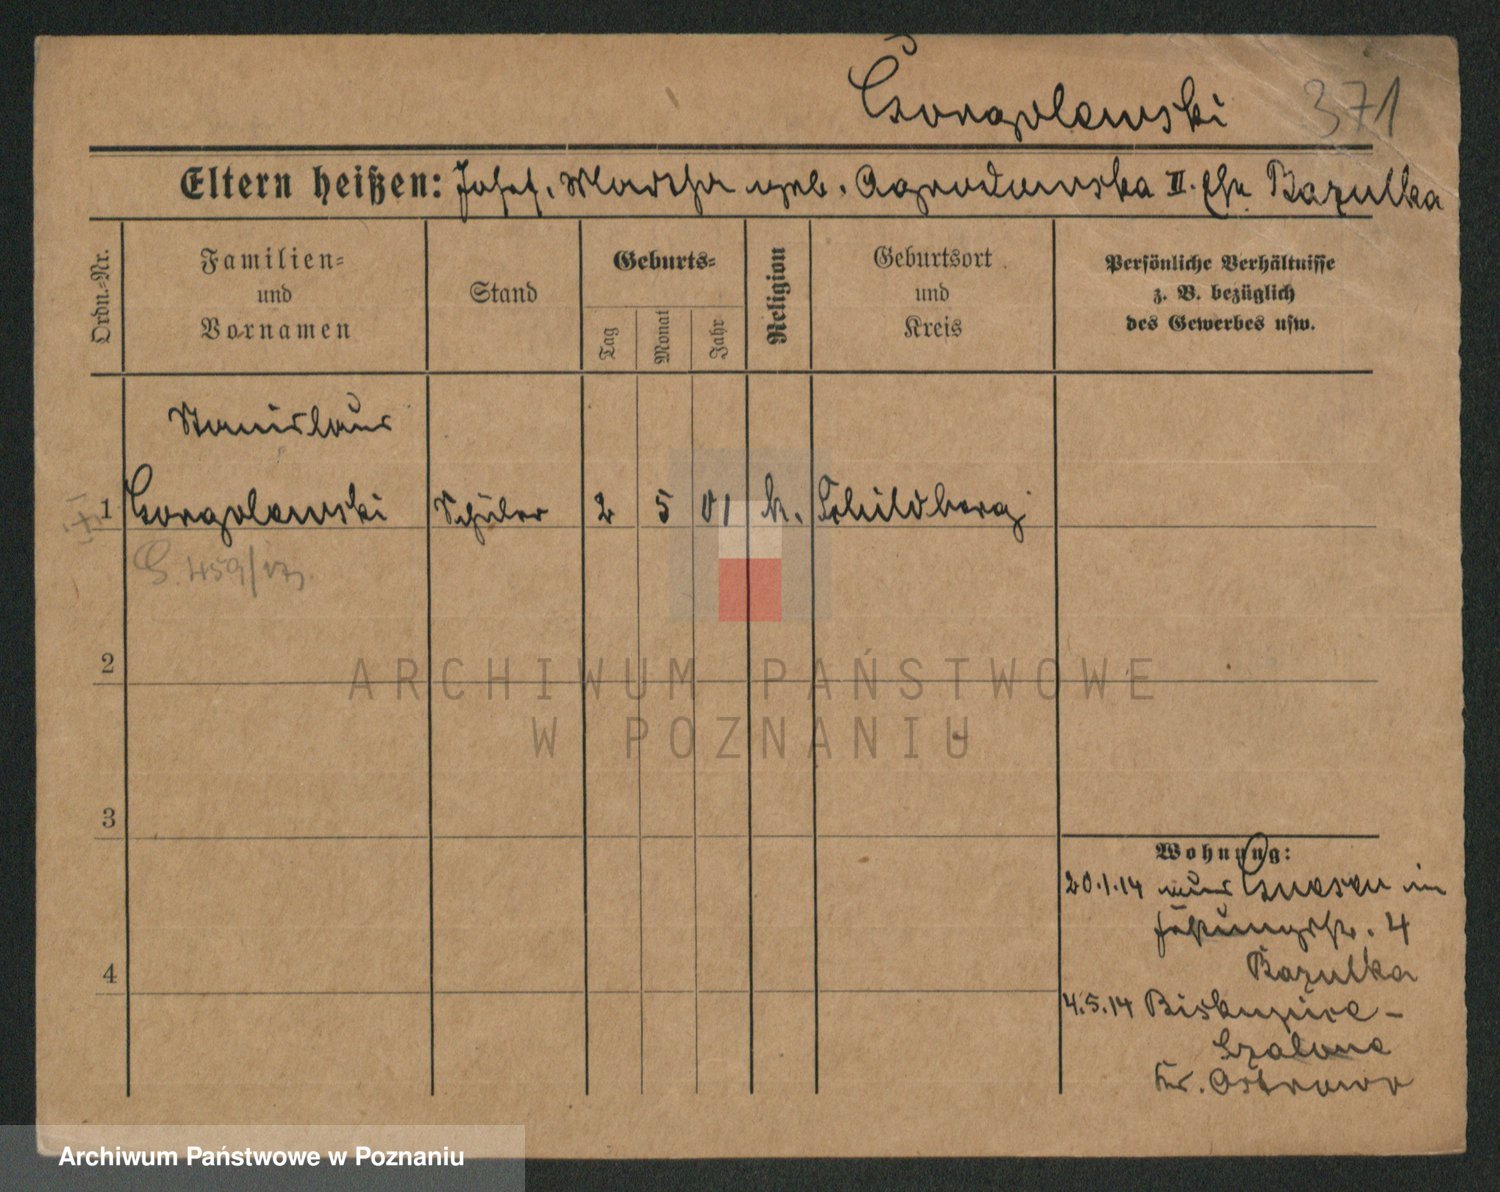 Czorgolewski 371
Eltern heißen: Josef. Martha geb. Ogrodowska II. Ehe Bazulka
Ordn.-Nr.
Familien-
und
Vornamen
Stand
Geburts-
Tag
Monat
Jahr
Religion
Geburtsort
und
Kreis
Persönliche Verhältnisse
z. B. bezüglich
des Gewerbes usw.
Stanislaus
1 Czorgolewski Schüler 2 5 01 k. Schildberg
459/
2
ARCHIWUM PAŃSTWOWE
W POZNANIU
3
Wohnung:
20.1.14 aus Gnesen in
4
Bazulka
4
4.5.14 Biskupice-
Szalone
Kr. Ostrowo
Archiwum Państwowe w Poznaniu